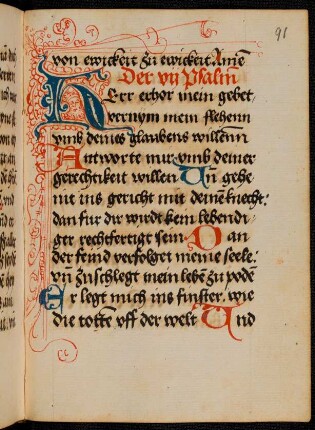 91
von ewickeit zu ewickeit Amē
Der vij psalm
HErr erhor mein gebet,
vernym mein flehenn
vmb deines glaubens willenn
Antworte mir vmb deiner
gerechtikeit willen Vn̄ gehe
nit ins gericht mit deinē knecht:
dan fur dir wirdt kein lebendi-
ger rechtfertigt sein. Dan
der feind verfolget meine seele:
vn̄ zuschlegt mein lebē zu podē
Er legt mich ins finster, wie
die totten vff der welt Vnd